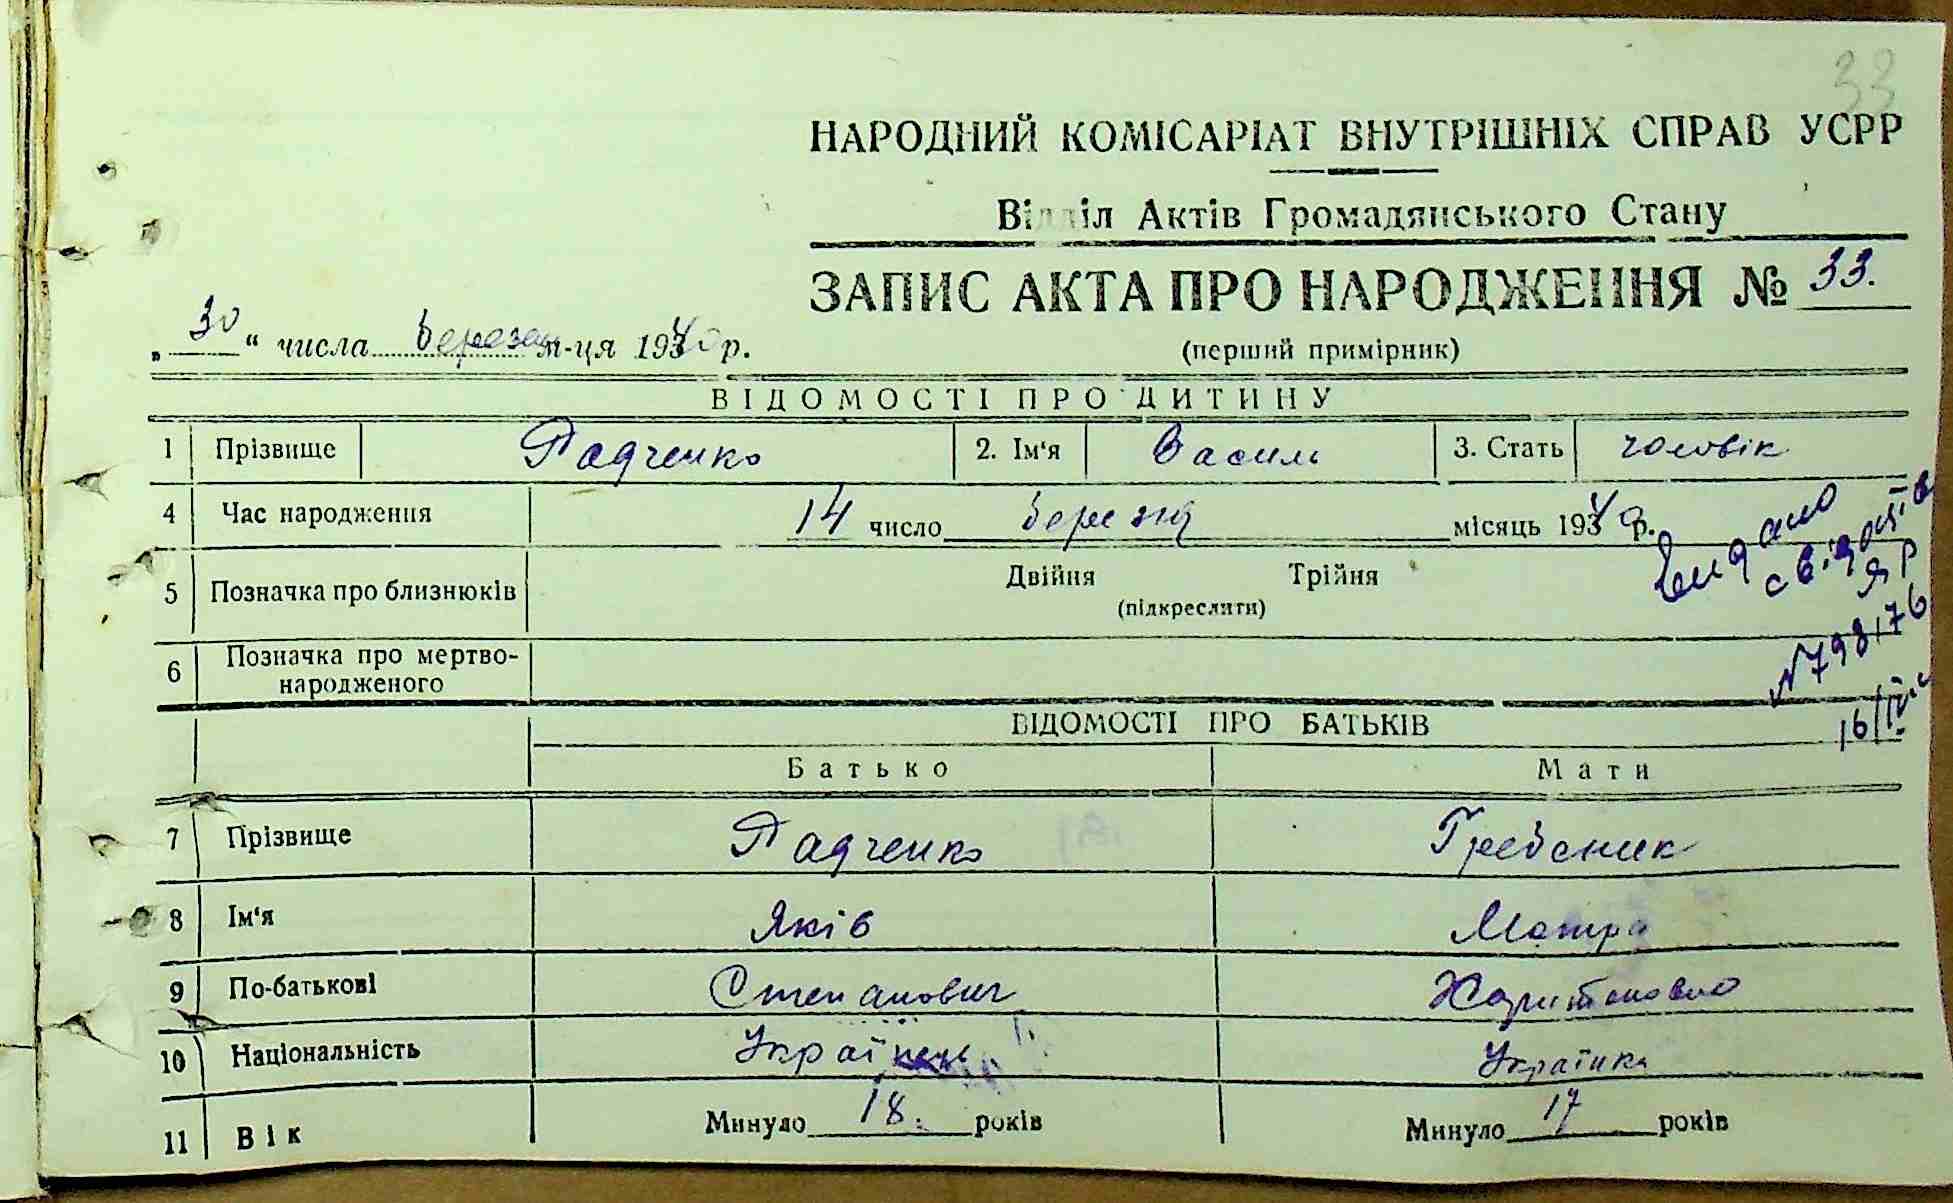 33
НАРОДНИЙ КОМІСАРІАТ ВНУТРІШНІХ СПРАВ УСРР
Відділ Актів Громадянського Стану
ЗАПИС АКТА ПРО НАРОДЖЕННЯ № 33.
(перший примірник)
„30“ числа березня м-ця 1940 р.
ВІДОМОСТІ ПРО ДИТИНУ
1 Прізвище Радченко 2. Ім'я Василь 3. Стать чоловік
4 Час народження 14 число березня місяць 1940 р.
Видано
свідоцтв
ЯР
№798176
16/IV
5 Позначка про близнюків Двійня Трійня
(підкреслити)
6 Позначка про мертво-
народженого
ВІДОМОСТІ ПРО БАТЬКІВ
Батько Мати
7 Прізвище Радченко Гребеник
8 Ім'я Яків Мотря
9 По-батькові Степанович Харитоновна
10 Національність Українец Українка
11 Вік Минуло 18. років Минуло 17 років